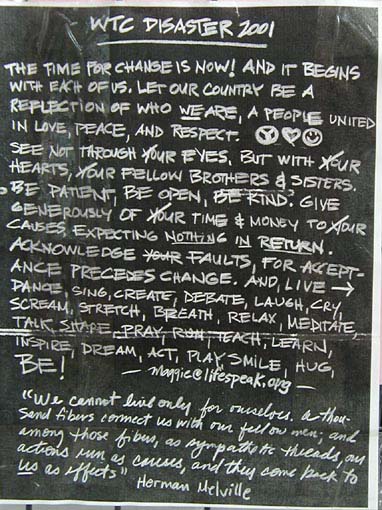 WTC DISASTER 2001
THE TIME FOR CHANGE IS NOW! AND IT BEGINS
WITH EACH OF US. LET OUR COUNTRY BE A
REFLECTION OF WHO WE ARE, A PEOPLE UNITED
IN LOVE, PEACE, AND RESPECT.
SEE NOT THROUGH YOUR EYES, BUT WITH YOUR
HEARTS, YOUR FELLOW BROTHERS & SISTERS.
BE PATIENT, BE OPEN, BE KIND. GIVE
GENEROUSLY OF YOUR TIME & MONEY TO YOUR
CAUSES, EXPECTING NOTHING IN RETURN.
ACKNOWLEDGE YOUR FAULTS, FOR ACCEPT-
ANCE PRECEDES CHANGE. AND, LIVE →
DANCE, SING, CREATE, DEBATE, LAUGH, CRY,
SCREAM, STRETCH, BREATH, RELAX, MEDITATE,
TALK, SHARE, PRAY, RUN, TEACH, LEARN,
INSPIRE, DREAM, ACT, PLAY, SMILE, HUG,
BE! — maggie@lifespeak.org —
"We cannot live only for ourselves. a thou-
sand fibers connect us with our fellow men; and
among those fibers, as sympathetic threads, our
actions run as causes, and they come back to
us as effects"
Herman Melville